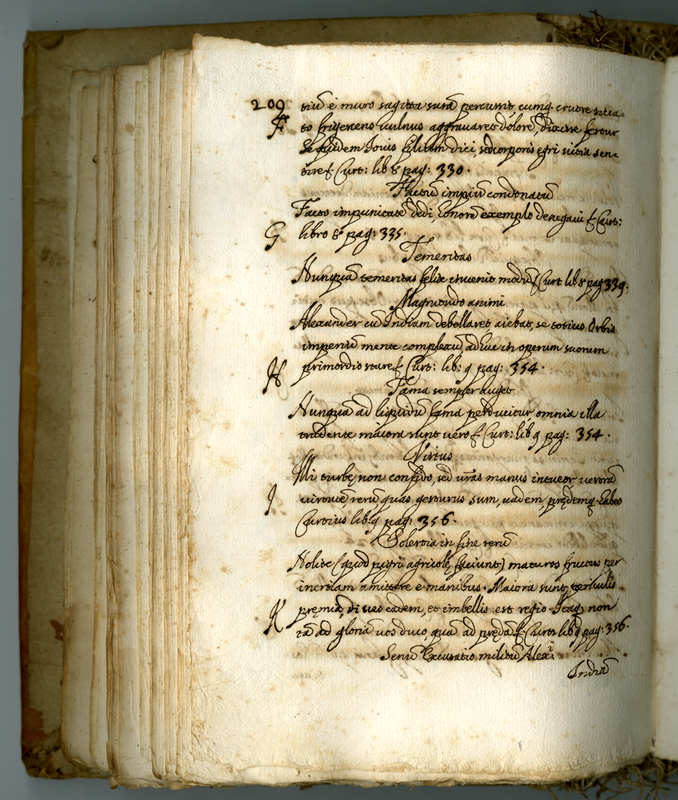 209 tiũ è muro sagitta surã percussit, cumq. cruore sicca-
F to frigescens vulnus aggravaret dolorẽ, dixisse fertur
se quidem Iovis filium dici, sed corporis ęgri vitia sen-
tire. Curt: lib 8 pag: 330.
Factũ impiũ condonatũ
Facto impunitatẽ dedi, honorẽ exemplo denegavi. Curt:
G libro 8 pag: 335.
Temeritas
Nunquã temeritas felix invenit modũ. Curt lib 8 pag 339.
Magnitudo animi
Alexander cũ Indiam debellaret aiebat, se totius Orbis
imperiũ mente complexũ, adhuc in operum suorum
H primordio stare. Curt: lib: 9 pag: 354.
Fama semper auget
Nunquã ad liquidũ fama perducitur omnia illa
tradente maiora sunt vero. Curt: lib 9 pag: 354.
Virtus
Ni turbę non confido, sed vr̃as manus intueor
I rerũ quas gesturus sum, vadem, prędemq. habeo
Curtius lib 9 pag: 356.
Solertia in fine rerũ
Nolite (quod pigri agricolę faciunt) maturos fructus per
inertiam amittere e manibus. Maiora sunt periculis
K pręmia, dives eadem, et imbellis est regio. Itaq. non
tã ad gloriã vos duco, quã ad prędã. Curt: lib 9 pag: 356.
Seniũ Excusatio militũ Alex:
Indiã